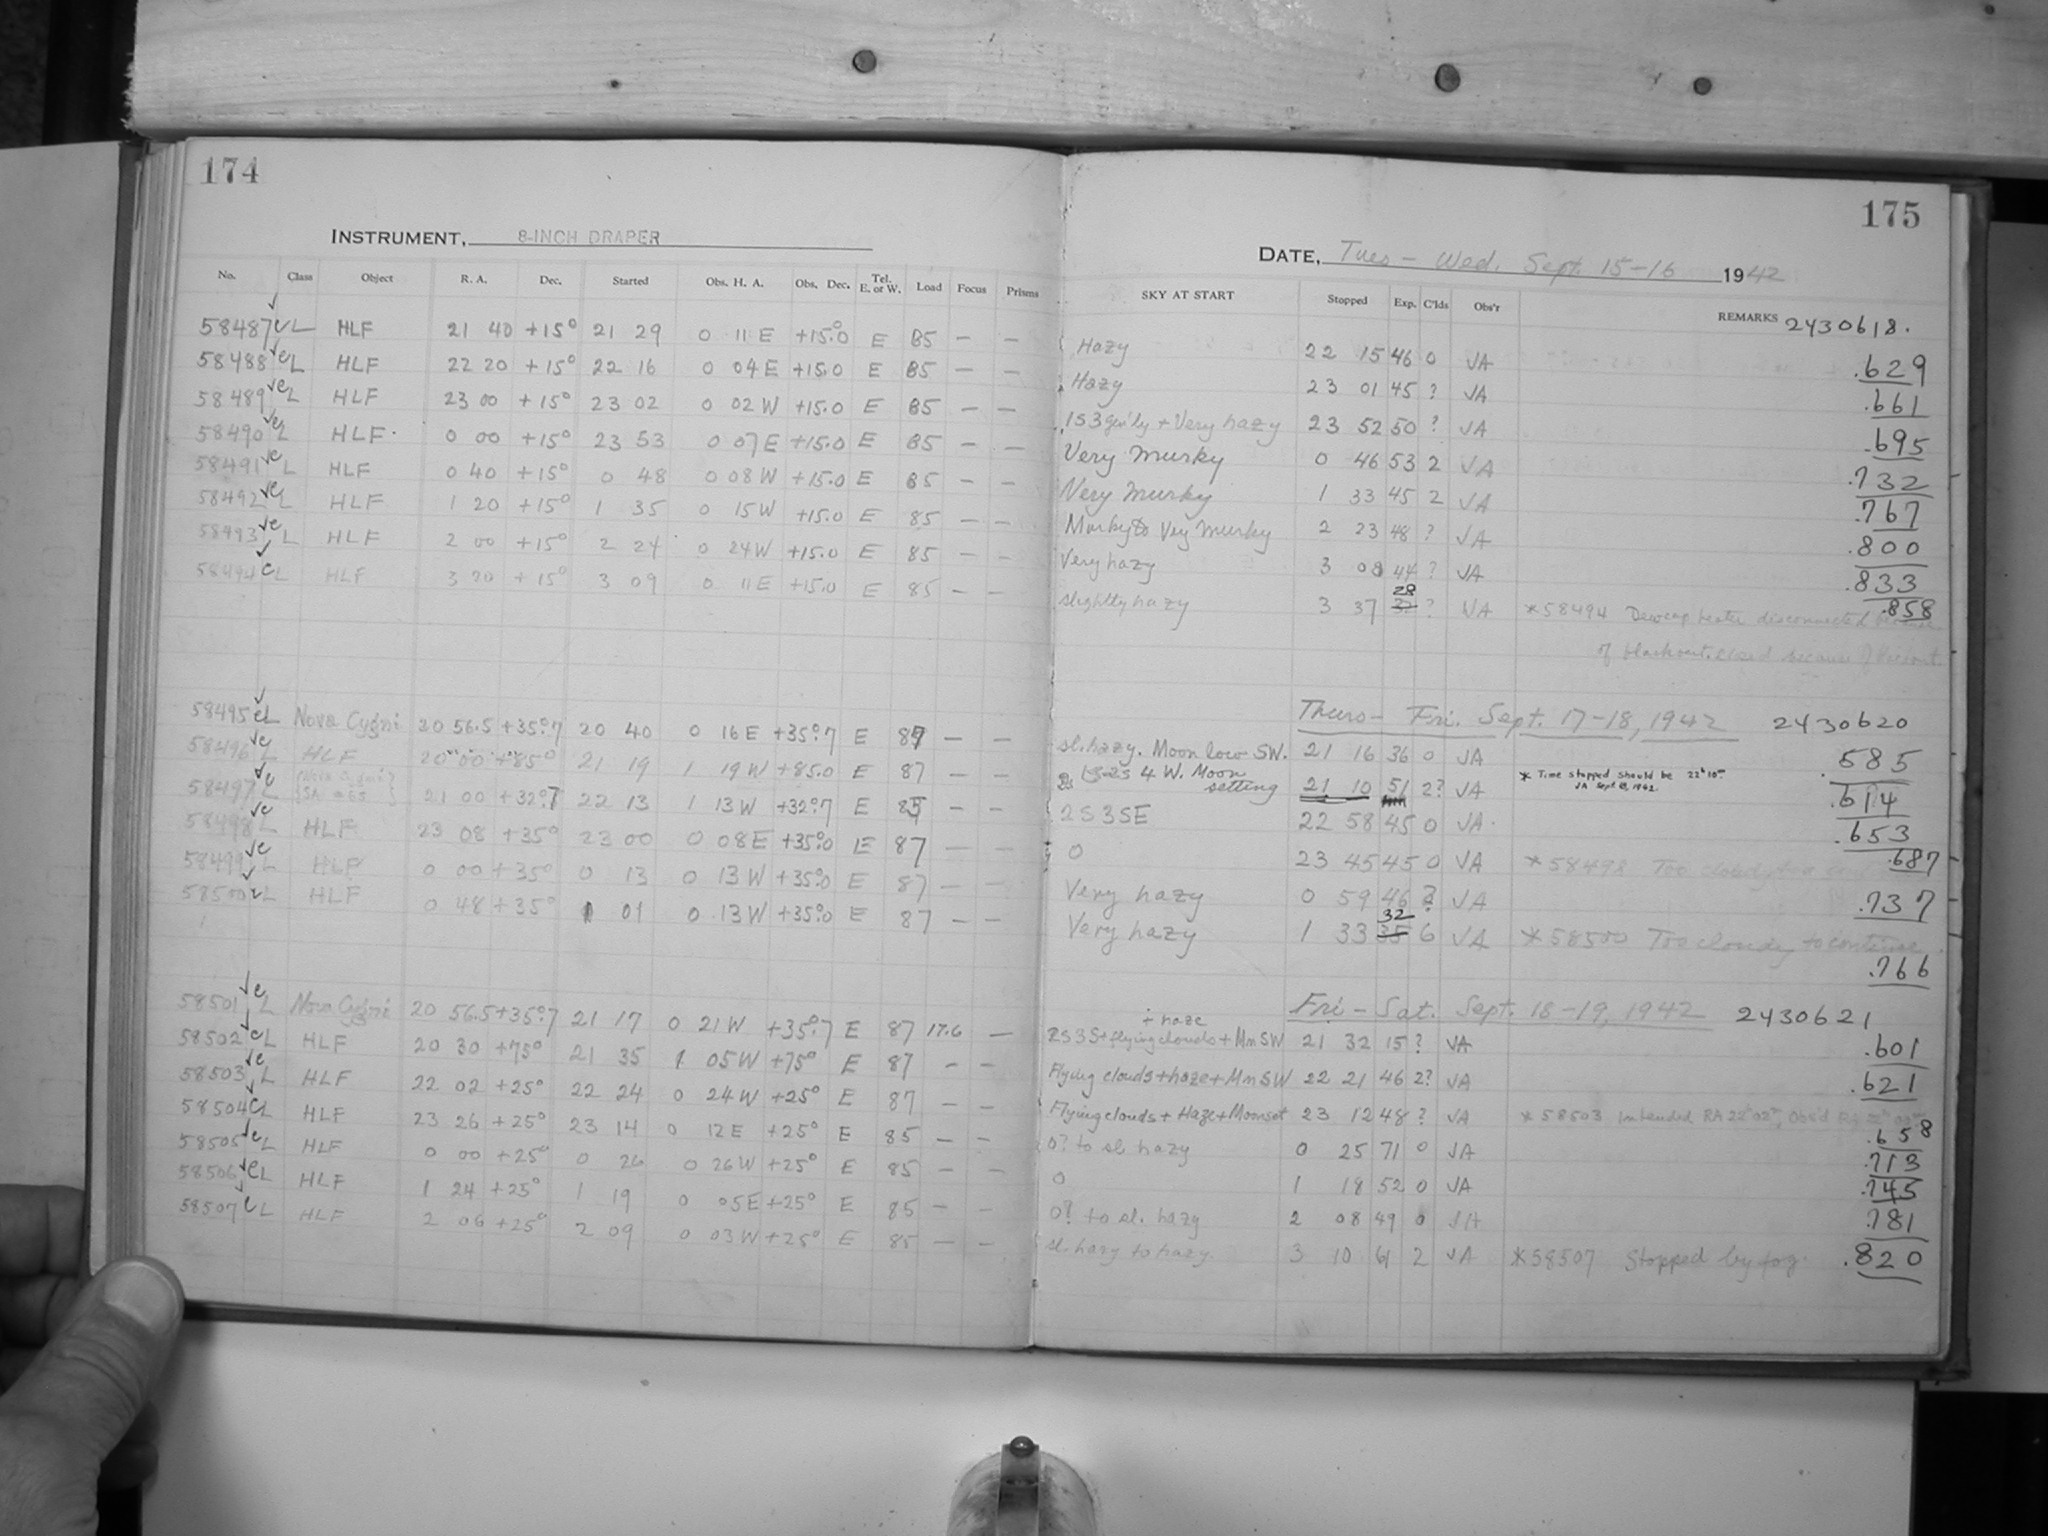 174
INSTRUMENT, 8-INCH DRAPER
No. Class Object R. A. Dec. Started Obs. H. A. Obs. Dec. Tel. E. or W. Load Focus Prisms
58487 eL HLF 21 40 +15° 21 29 0 11 E +15.0 E 85 — —
58488 eL HLF 22 20 +15° 22 16 0 04 E +15.0 E 85 — —
58489 eL HLF 23 00 +15° 23 02 0 02 W +15.0 E 85 — —
58490 eL HLF 0 00 +15° 23 53 0 07 E +15.0 E 85 — —
58491 eL HLF 0 40 +15° 0 48 0 08 W +15.0 E 85 — —
58492 eL HLF 1 20 +15° 1 35 0 15 W +15.0 E 85 — —
58493 eL HLF 2 00 +15° 2 24 0 24 W +15.0 E 85 — —
58494 eL HLF 3 20 +15° 3 09 0 11 E +15.0 E 85 — —
58495 eL Nova Cygni 20 56.5 +35°.7 20 40 0 16 E +35°.7 E 87 — —
58496 eL HLF 20 00 +85° 21 19 1 19 W +85.0 E 87 — —
58497 eL 21 00 +32°.7 22 13 1 13 W +32°.7 E — —
58498 eL HLF 23 08 +35° 23 00 0 08 E +35°.0 E 87 — —
58499 eL HLF 0 00 +35° 0 13 0 13 W +35°.0 E 87 — —
58500 eL HLF 0 48 +35° 1 01 0 13 W +35°.0 E 87 — —
58501 eL Nova Cygni 20 56.5 +35°.7 21 17 0 21 W +35°.7 E 87 17.6 —
58502 eL HLF 20 30 +75° 21 35 1 05 W +75° E 87 — —
58503 eL HLF 22 02 +25° 22 24 0 24 W +25° E 87 — —
58504 eL HLF 23 26 +25° 23 14 0 12 E +25° E 85 — —
58505 eL HLF 0 00 +25° 0 26 0 26 W +25° E 85 — —
58506 eL HLF 1 24 +25° 1 19 0 05 E +25° E 85 — —
58507 eL HLF 2 06 +25° 2 09 0 03 W +25° E 85 — —
175
DATE, Tues - Wed. Sept. 15-16 1942
SKY AT START Stopped Exp. C'lds Obs'r REMARKS 2430618.
Hazy 22 15 46 0 JA .629
Hazy 23 01 45 ? JA .661
1S3 gen'ly + Very hazy 23 52 50 ? JA .695
Very Murky 0 46 53 2 JA .732
Very Murky 1 33 45 2 JA .767
Murky to Very Murky 2 23 48 ? JA .800
Very hazy 3 08 44 ? JA .833
slightly hazy 3 37 28 ? JA *58494 Dewcap heater disconnected because .858
of blackout. Closed because of
Thurs - Fri. Sept. 17-18, 1942 2430620
sl. hazy. Moon low SW. 21 16 36 0 JA .585
4 W. Moon setting 21 10 51 2? JA * Time stopped should be 22ʰ10ᵐ .614
JA Sept 1942.
2S3SE 22 58 45 0 JA .653
0 23 45 45 0 JA *58498 Too cloudy .687
Very hazy 0 59 46 ? JA .737
Very hazy 1 33 32 6 JA *58500 Too cloudy to continue
.766
Fri - Sat. Sept. 18-19, 1942 2430621
+ haze
2S3S+flying clouds + Mn SW 21 32 15 ? JA .601
Flying clouds+haze+Mn SW 22 21 46 2? JA .621
Flying clouds + Haze+Moonset 23 12 48 ? JA *58503 Intended RA 22ʰ02ᵐ, Obs'd .658
0? to sl. hazy 0 25 71 0 JA .713
0 1 18 52 0 JA .745
0? to sl. hazy 2 08 49 0 JA .781
sl. hazy to hazy. 3 10 61 2 JA *58507 Stopped by fog. .820